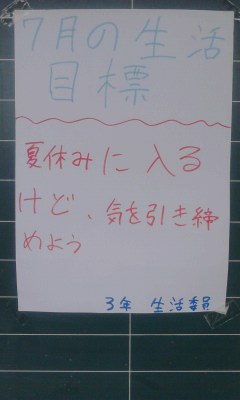 7月の生活
目標
夏休みに入る
けど、気を引き締
めよう
3年 生活委員